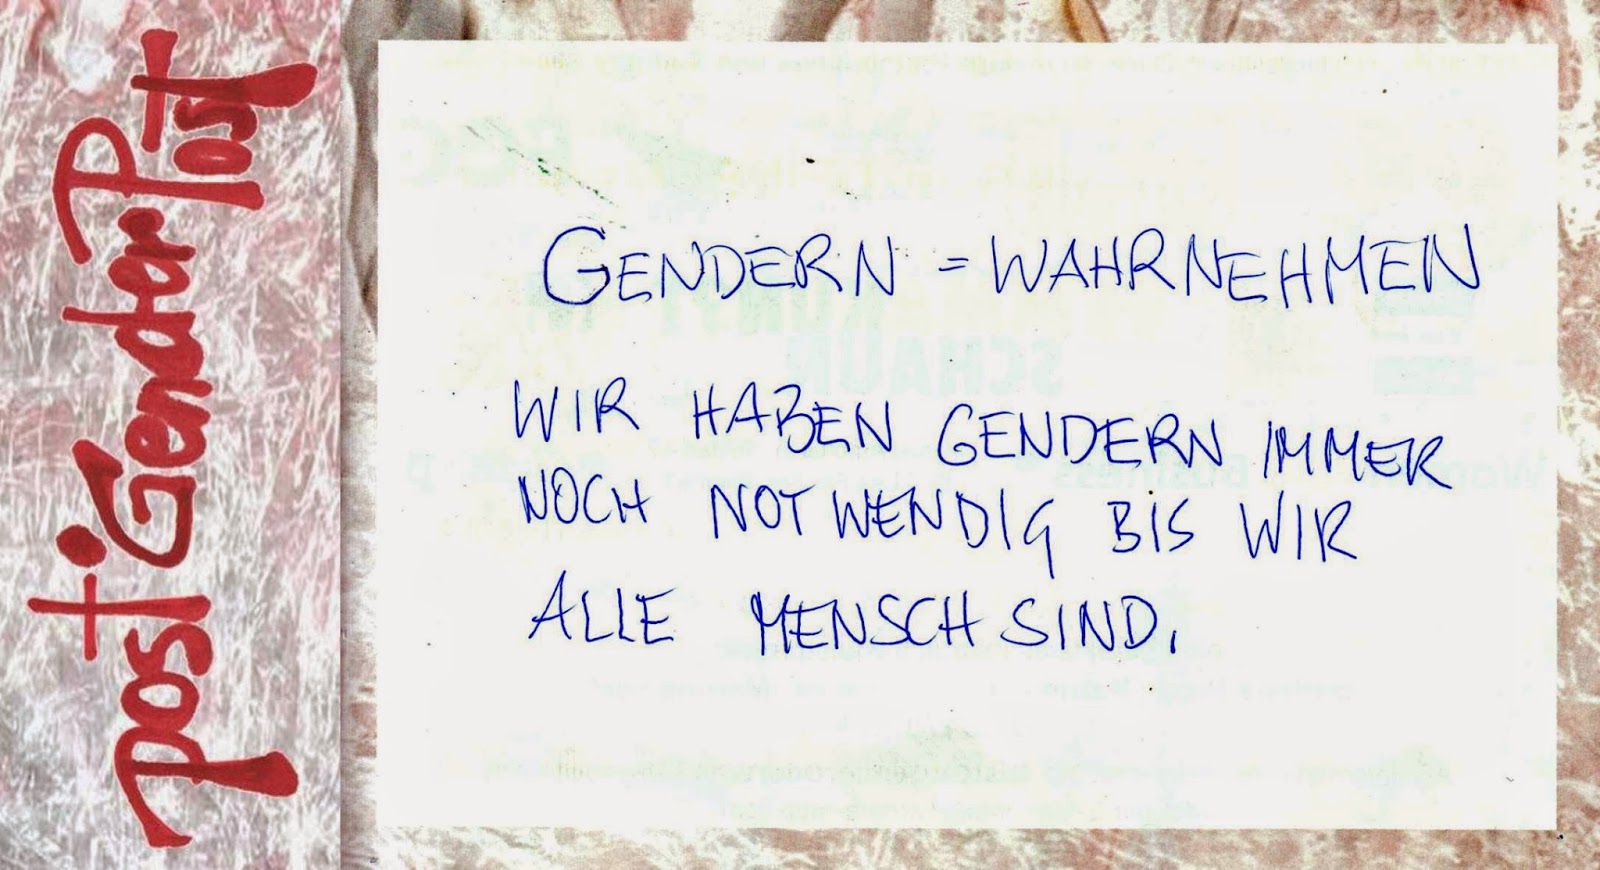 post Gender Post
GENDERN = WAHRNEHMEN
WIR HABEN GENDERN IMMER
NOCH NOTWENDIG BIS WIR
ALLE MENSCH SIND.